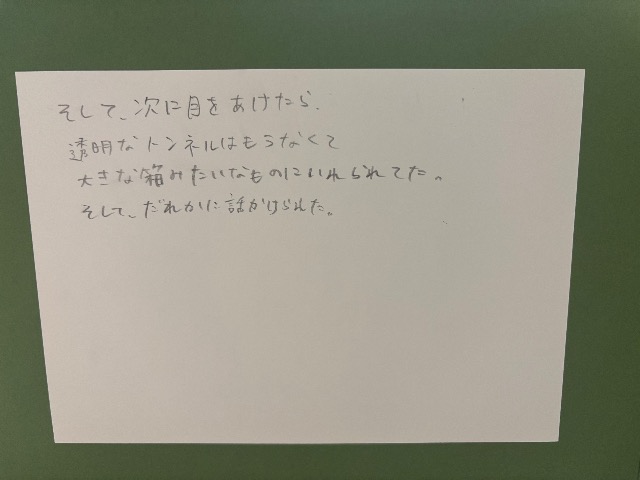 そして、次に目をあけたら、
透明なトンネルはもうなくて
大きな箱みたいなものにいれられてた。
そして、だれかに話かけられた。